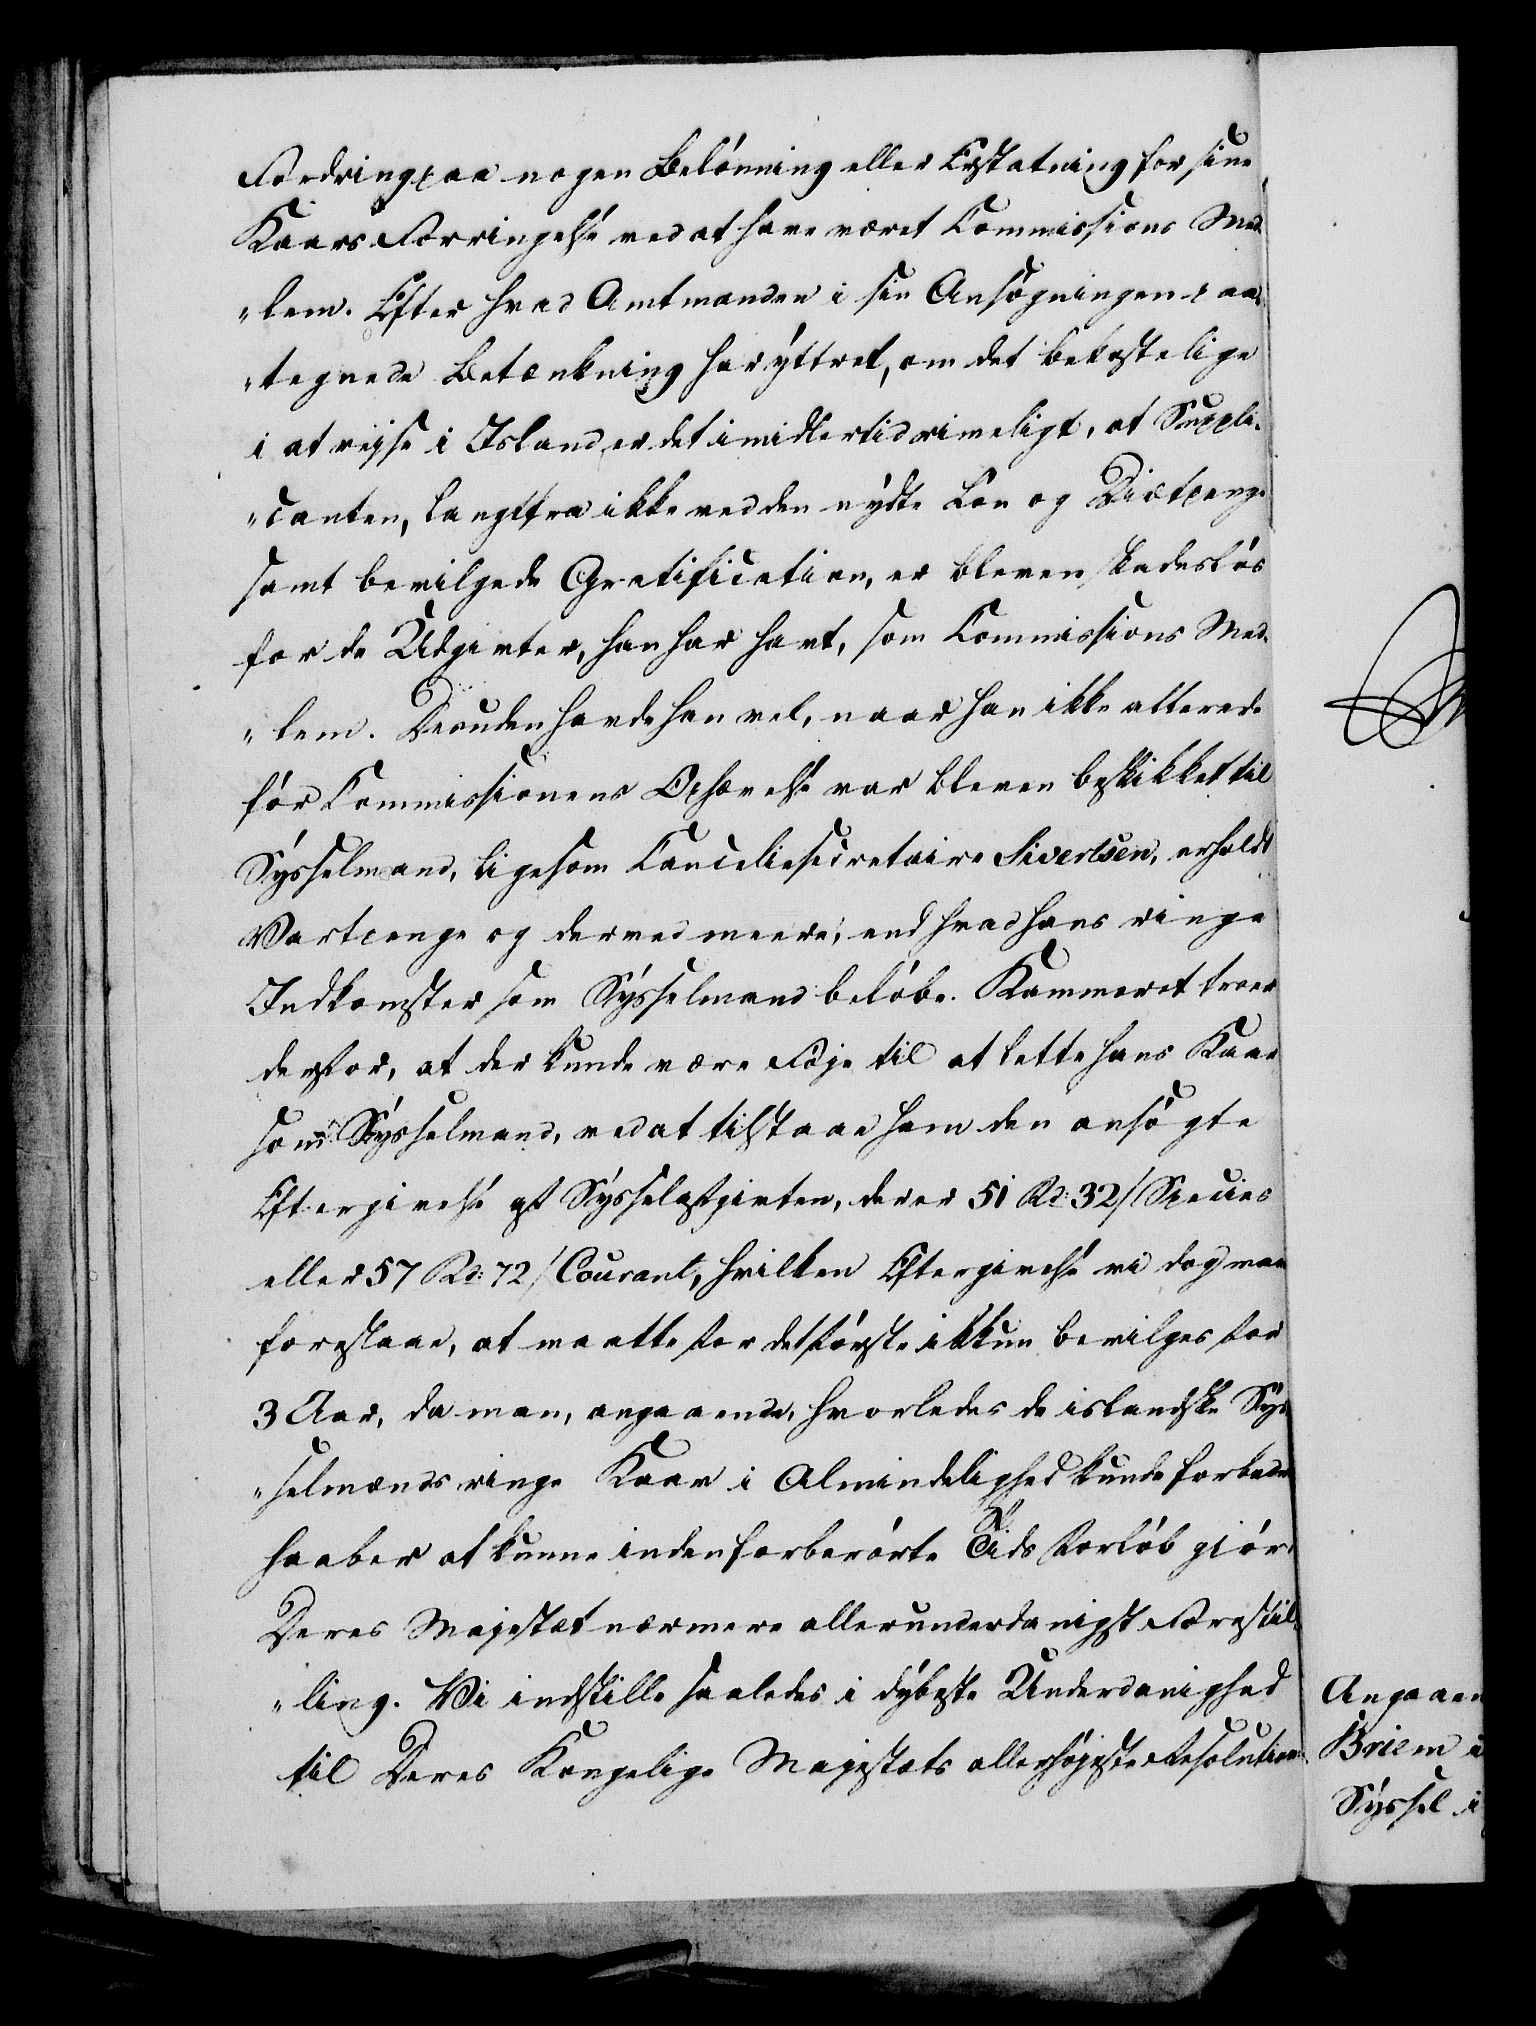 Fordring paa nogen Belønning eller Erstatning for sine
Kaars Forringelse ved at have været Commissions Med-
„lem. Efter hvad Amtmanden i sin Ansøgningen paa-
„tegnede Betænkning har yttret, om det bekostelige
i at rejse i Island er det imidlertid rimeligt, at Suppli-
„canten, langtfra ikke ved den nydte Løn og Diætpenge
samt bevilgede Gratification, er bleven skadesløs
for de Udgivter, han har havt, som Commissions Med-
„lem. Desuden havde han vel, naar han ikke allerede
før Commissionens Ophævelse var bleven beskikket til
Sysselmand, ligesom Canceliesecretaire Sivertsen, erholdt
Vartpenge og derved meere, end hvad hans ringe
Indkomster som Sysselmand beløbe. Kammeret troer
derfor, at der kunde være Føje til at lette hans Kaar
som Sysselmand, ved at tilstaae ham den ansøgte
Eftergivelse af Sysselafgivten, der er 51 Rd: 32 s Species
eller 57 Rd: 72 s Courant, hvilken Eftergivelse vi dog maa
foreslaae, at maatte for det første ikkun bevilges for
3 Aar, da man, angaaende, hvorledes de islandske Sys-
„selmænds ringe Kaar i Almindelighed kunde forbedres
haaber at kunne inden forberørte Tids Forløb giøre
Deres Majestæt nærmere allerunderdanigst Forestil-
„ling. Vi indstille saaledes i dybeste Underdanighed
til Deres Kongelige Majestæts allerhøjeste Resolution
Angaaen
Briem i
Syssel i